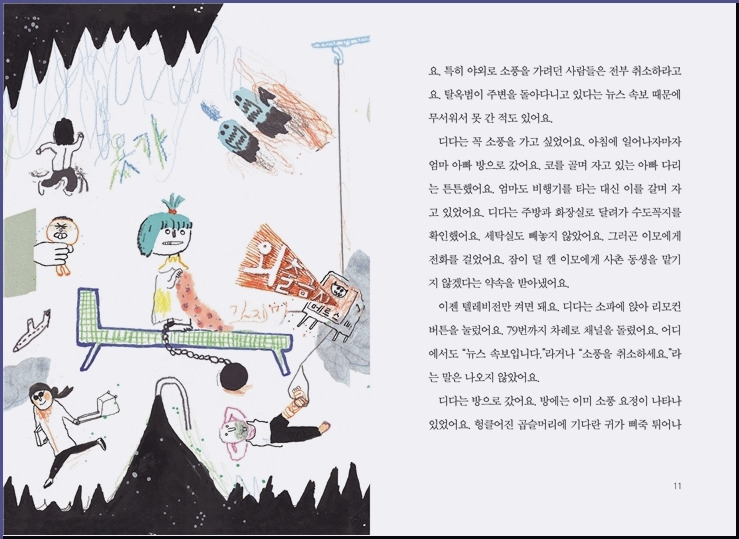 외출금지
메르스
요. 특히 야외로 소풍을 가려던 사람들은 전부 취소하라고
요. 탈옥범이 주변을 돌아다니고 있다는 뉴스 속보 때문에
무서워서 못 간 적도 있어요.
디다는 꼭 소풍을 가고 싶었어요. 아침에 일어나자마자
엄마 아빠 방으로 갔어요. 코를 골며 자고 있는 아빠 다리
는 튼튼했어요. 엄마도 비행기를 타는 대신 이를 갈며 자
고 있었어요. 디다는 주방과 화장실로 달려가 수도꼭지를
확인했어요. 세탁실도 빼놓지 않았어요. 그러곤 이모에게
전화를 걸었어요. 잠이 덜 깬 이모에게 사촌 동생을 맡기
지 않겠다는 약속을 받아냈어요.
이젠 텔레비전만 켜면 돼요. 디다는 소파에 앉아 리모컨
버튼을 눌렀어요. 79번까지 차례로 채널을 돌렸어요. 어디
에서도 “뉴스 속보입니다.”라거나 “소풍을 취소하세요.”라
는 말은 나오지 않았어요.
디다는 방으로 갔어요. 방에는 이미 소풍 요정이 나타나
있었어요. 헝클어진 곱슬머리에 기다란 귀가 삐죽 튀어나
11